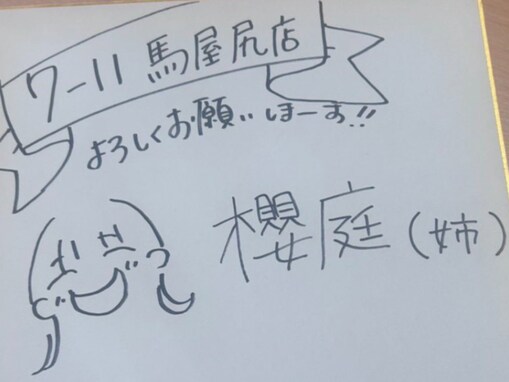 7-11 馬屋尻店
よろしくお願いしまーす!!
櫻庭(姉)